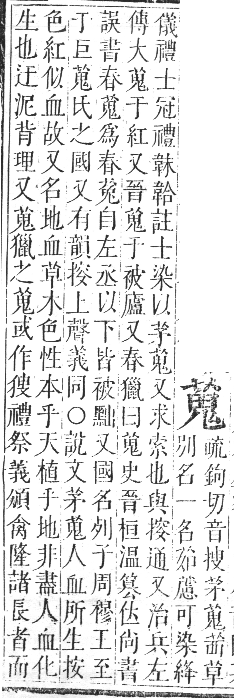 蒐
疏鉤切音搜茅蒐茜草
別名一名茹藘可染絳
儀禮士冠禮韎韐註士染以茅蒐又求索也與按通又治兵左
傳大蒐于紅又晉蒐于被廬又春獵曰蒐史晉桓溫篡位尚書
誤書春蒐爲春菟自左丞以下皆被黜又國名列子周穆王至
于巨蒐氏之國又有韻按上聲義同○說文茅蒐人血所生按
色紅似血故又名地血草木色性本乎天植乎地非盡人血化
生也迂泥背理又蒐獵之蒐或作獀禮祭義頒禽隆諸長者而